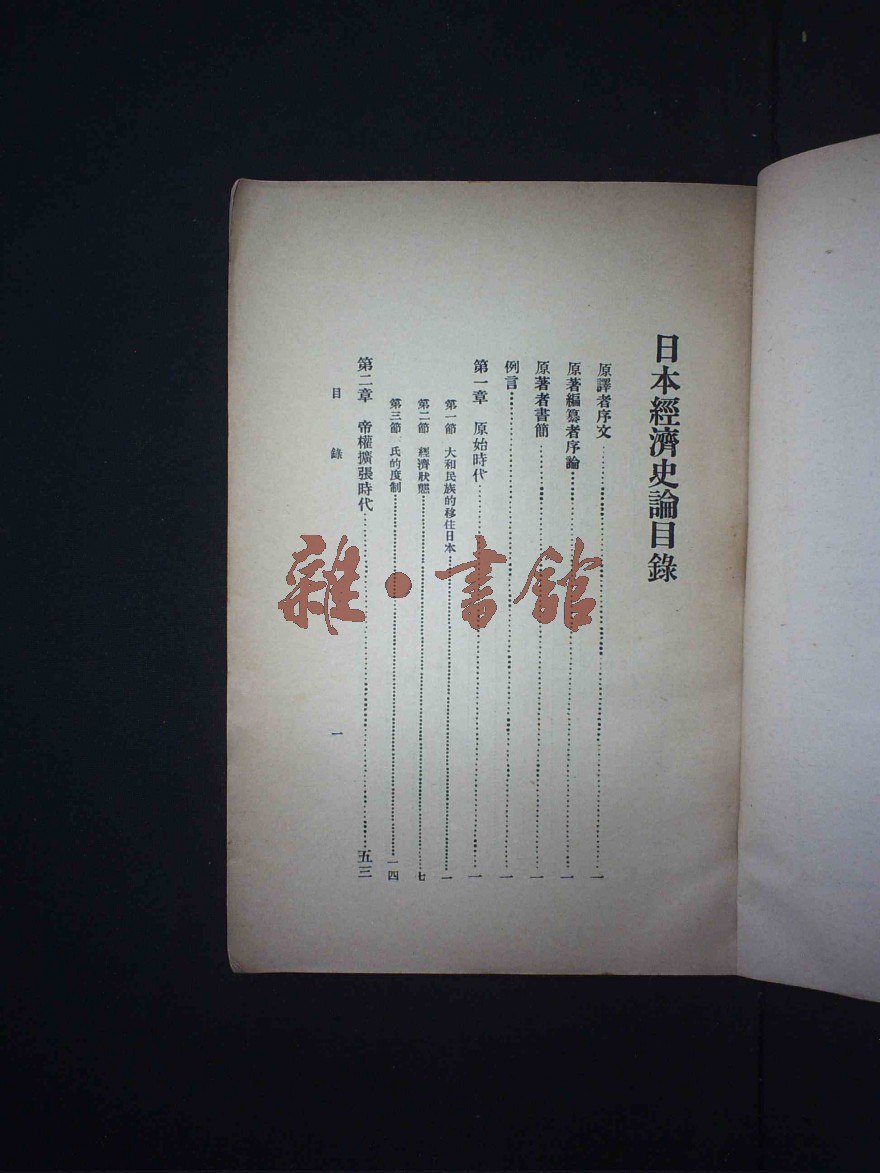 日本經濟史論目錄
原譯者序文……一
原著編纂者序論……一
原著者書簡……一
例言……一
第一章 原始時代……一
第一節 大和民族的移住日本……一
第二節 經濟狀態……七
第三節 氏的度制……一四
第二章 帝權擴張時代……五三
目錄 一
雜·書館